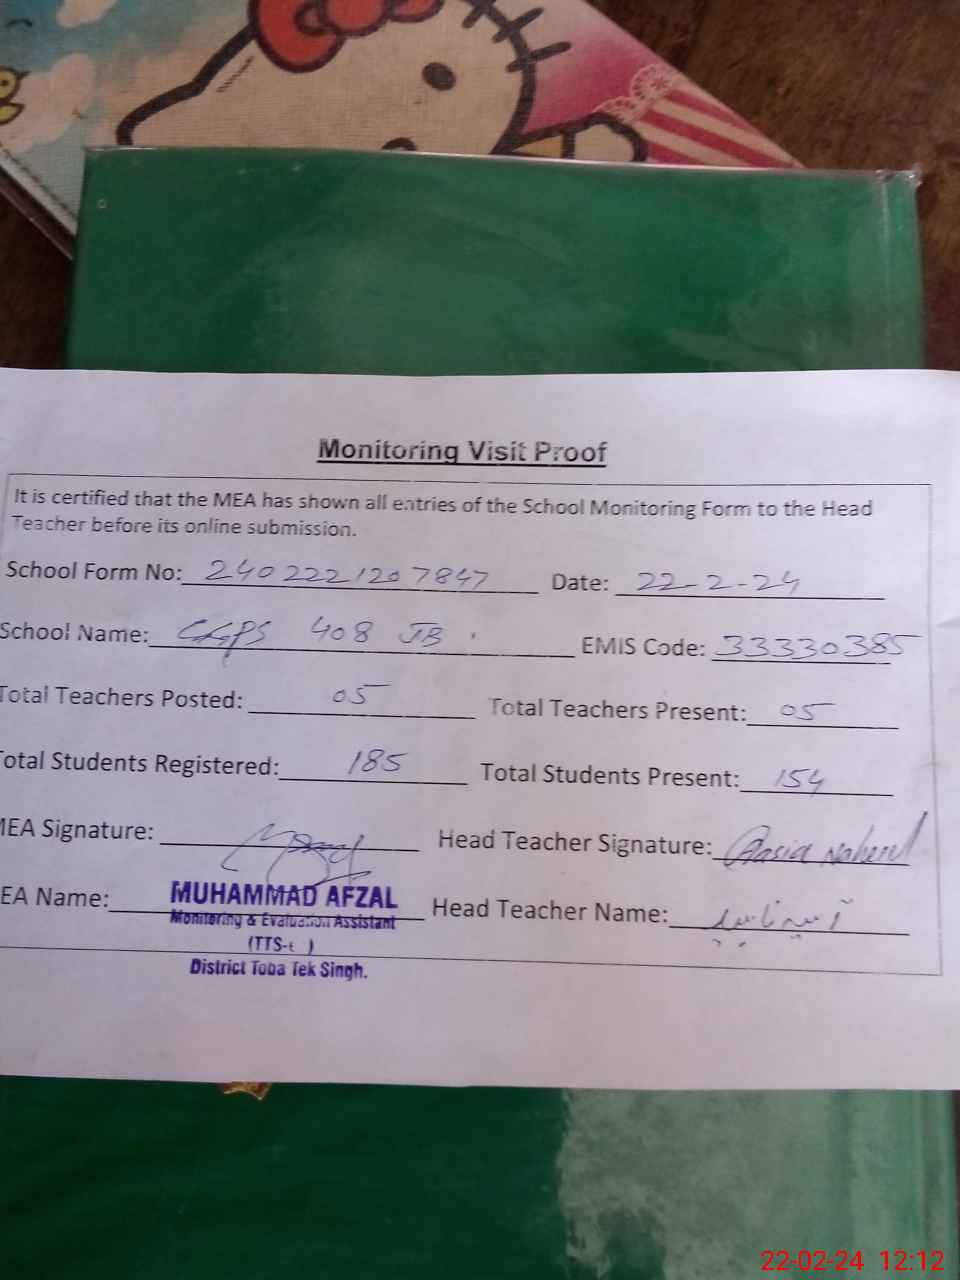 Monitoring Visit Proof
It is certified that the MEA has shown all entries of the School Monitoring Form to the Head
Teacher before its online submission.
School Form No: 2402221207847 Date: 22-2-24
School Name: CGPS 408 JB EMIS Code: 33330385
Total Teachers Posted: 05 Total Teachers Present: 05
Total Students Registered: 185 Total Students Present: 154
MEA Signature: Head Teacher Signature: Aasia Naheed
EA Name: MUHAMMAD AFZAL Head Teacher Name: آسیہ ناہید
Monitoring & Evaluation Assistant
(TTS- )
District Toba Tek Singh.
22-02-24 12:12